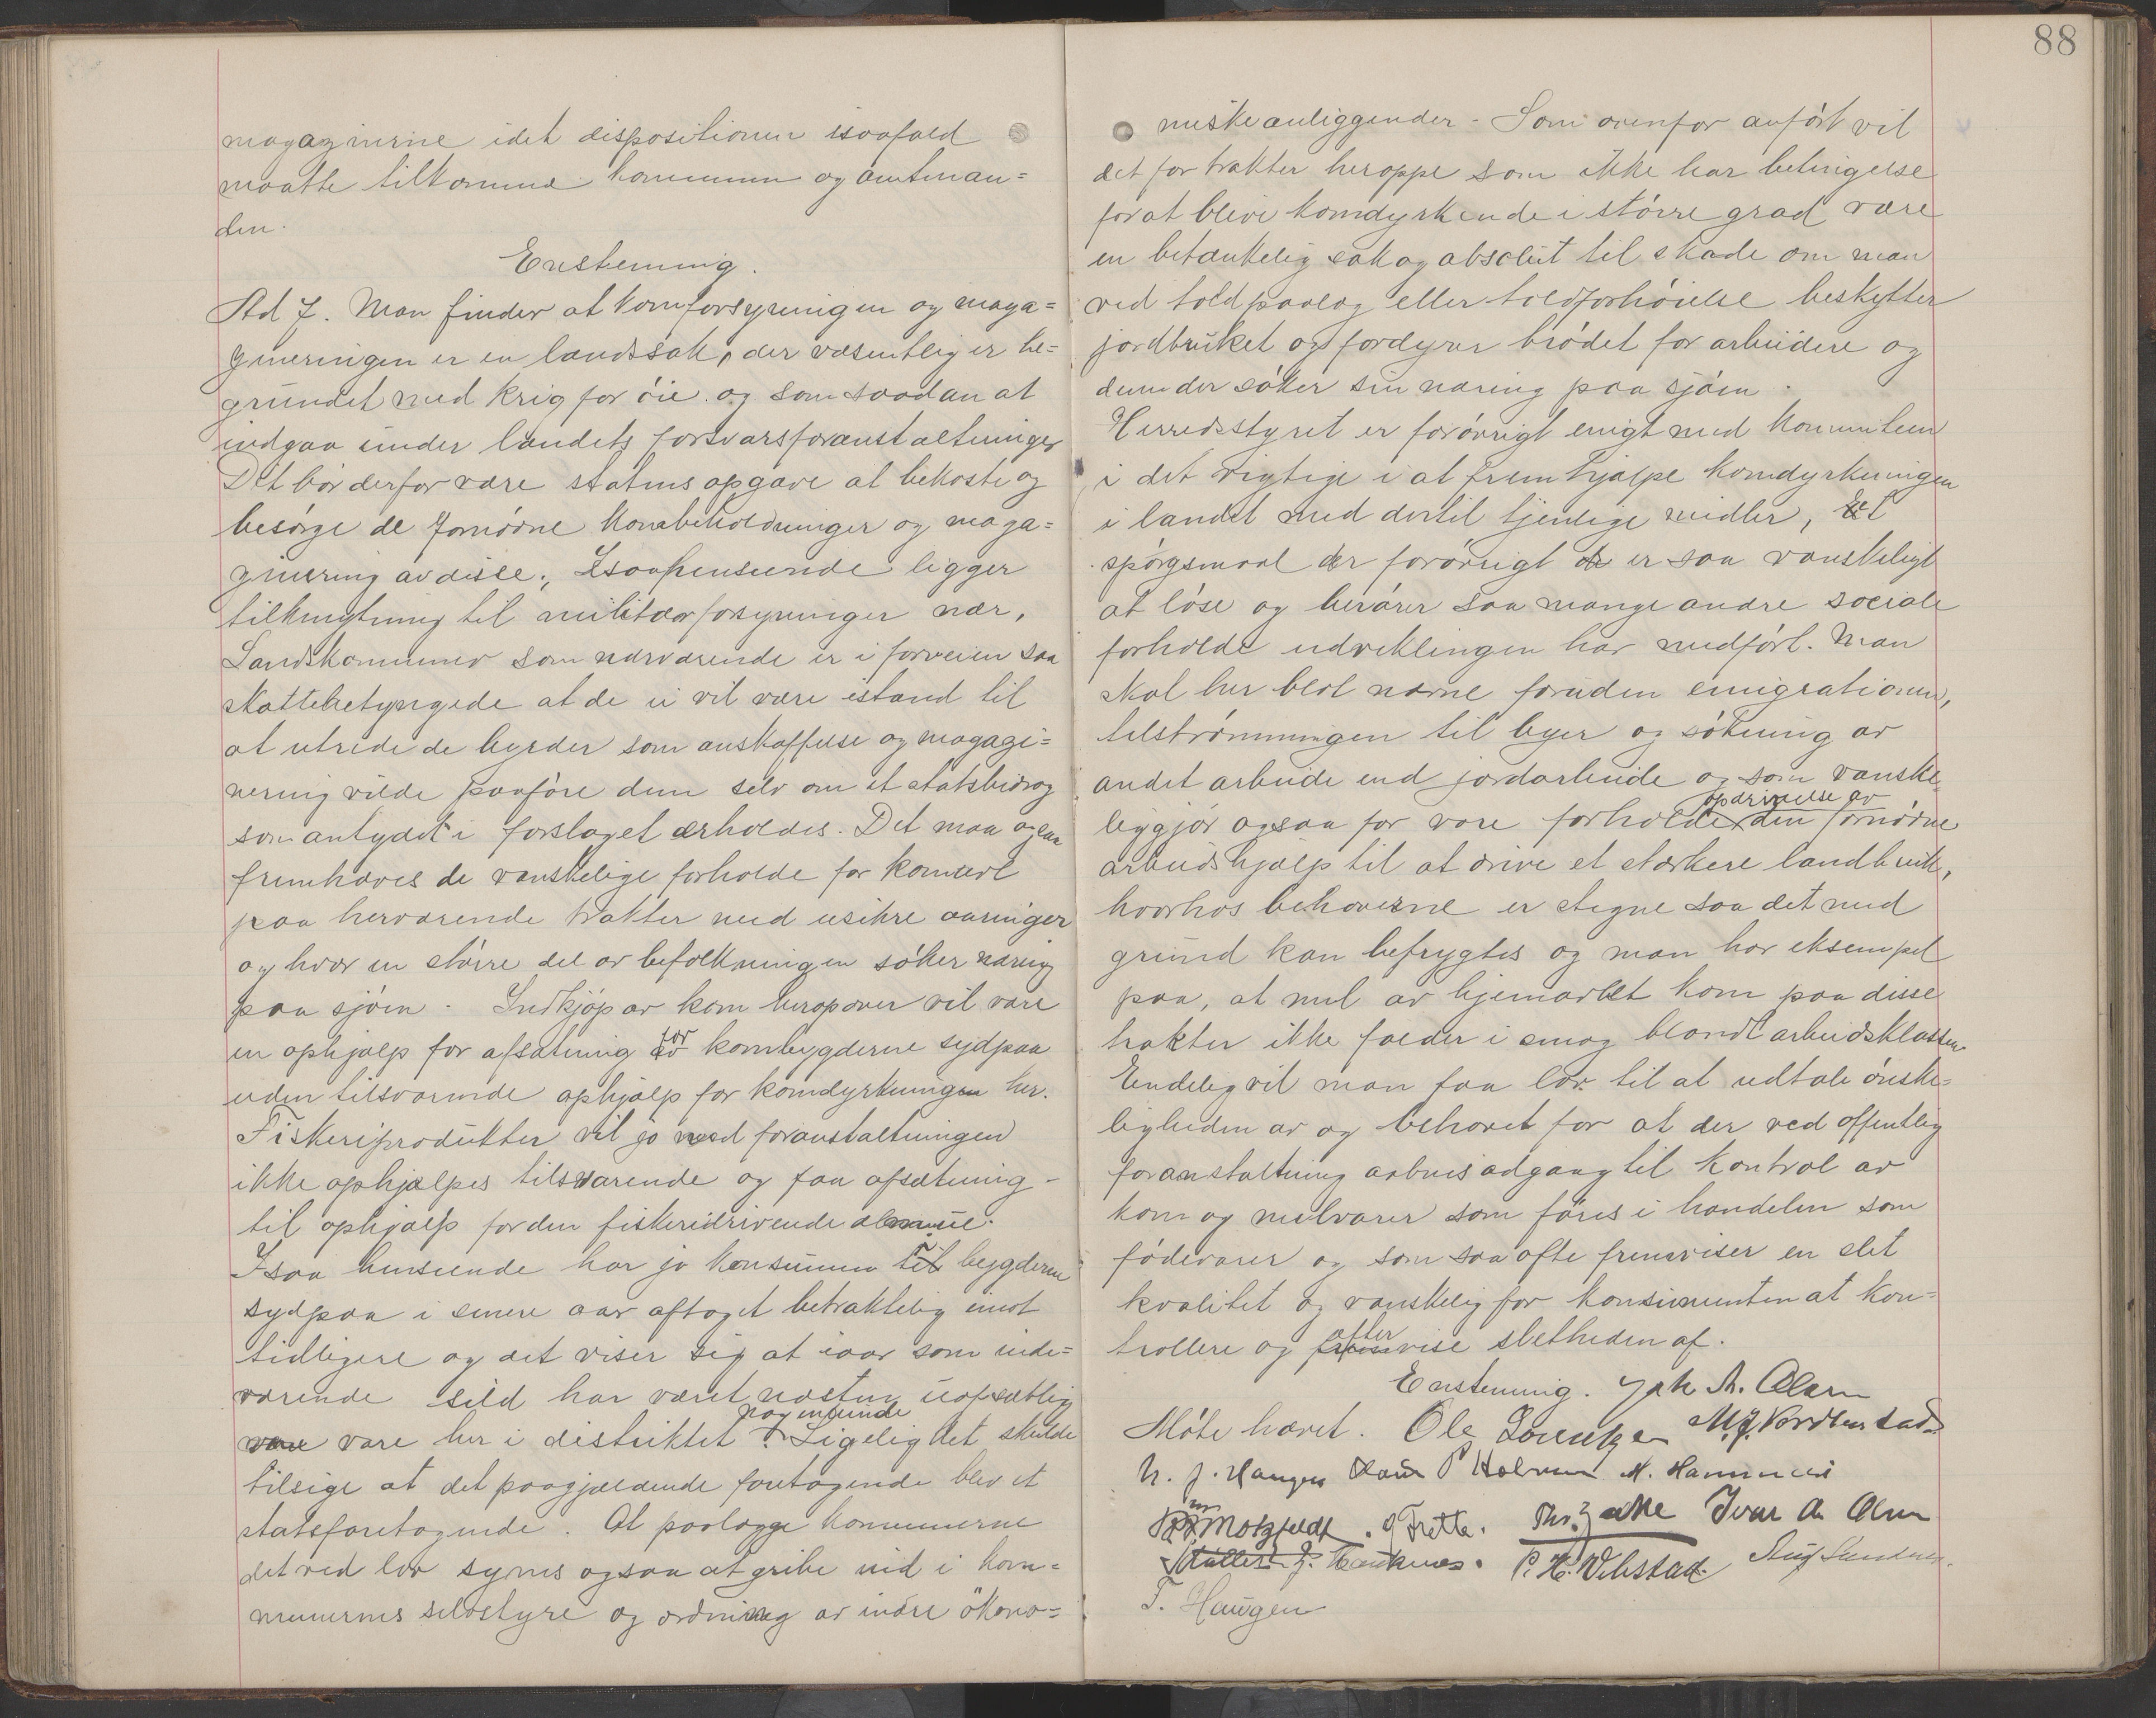 88
magazinerne idet dispositionen isaafald
maatte tilkomme kommunen og amtman=
den.
Enstemmig.
Ad 7. Man finder at kornforsyningen og maga=
zineringen er en landssak, der væsentlig er be=
grundet med krig for öie og som saadan at
indgaa under landets forsvarsforanstaltninger
Det bör derfor være statens opgave at bekoste og
besörge de fornödne kornbeholdninger og maga=
zinering av disse. Isaahenseende ligger
tilknytning til militærforsyninger nær,
Landskommuner som nærværende er i forveien saa
skattebetyngede at de ei vil være istand til
at utrede de byrder som anskaffelse og magazi=
nering vilde paaföre dem selv om et statsbidrag
som antydet i forslaget erholdes. Det maa ogsaa
fremhæves de vanskelige forholde for kornavl
paa herværende trakter med usikre aaringer
og hvor en större del av befolkningen söker næring
paa sjöen - Indkjöp av korn heropover vil være
en ophjælp for afsætning for kornbygderne sydpaa
uden tilsvarende ophjælp for korndyrkningen her.
Fiskeriprodukter vil jo ved foranstaltningen
ikke ophjælpes tilsvarende og faa afsætning -
til ophjælp for den fiskeridrivende almue.
I saa henseende har jo konsumen til bygderne
sydpaa i senere aar aftaget betraktelig imot
tidligere og det viser sig at iaar som inde=
værende sild har været næsten uafsættelig
vare her i distriktet nogensinde. Ligelighet skulde
tilsige at det paagjældende foretagende blev et
statsforetagende. At paalægge kommunerne
det ved lov synes ogsaa at gribe ind i kom=
munernes selvstyre og ordning av indre ökono=
miske anliggender - Som ovenfor anfört vil
det for trakter heroppe som ikke har betingelse
for at blive korndyrkende i större grad være
en betænkelig sak og absolut til skade om man
ved toldpaalæg eller toldforhöielse beskytter
jordbruket og fordyrer brödet for arbeidere og
dem der söker sin næring paa sjöen.
Herredsstyret er forövrigt enigt med komiteen
i det rigtige i at fremhjælpe korndyrkningen
i landet med dertil tjenlige midler, et
spörgsmaal der forövrigt er saa vanskeligt
at löse og berörer saa mange andre sociale
forholde udviklingen har medfört. Man
skal her blot nævne foruden emigrationen,
tilströmningen til byer og sökning av
andet arbeide end jordarbeide og som vanske=
liggjör ogsaa for vore forholde opdrivelse av den fornödne
arbeidshjælp til at drive et stærkere landbruk,
hvorhos behoverne er stegne saa det med
grund kan befrygtes og man har eksempel
paa, at mel av hjemavlet korn paa disse
trakter ikke falder i smag blandt arbeidsklassen.
Endelig vil man faa lov til at udtale önske=
ligheden av og behovet for at der ved offentlig
foranstaltning aabnes adgang til kontrol av
korn og melvarer som föres i handelen som
födevarer og som saa ofte fremviser en slet
kvalitet og vanskelig for konsumenten at kon=
trollere og eftervise sletheden af.
Enstemmig. Joh A. Olsen
Möte hævet. Ole Lorentzen M.J. Nordbustad
N. J. Haugen P Holmen M. Hammeri
Motzfeldt. J Fretta. Ths. Zakke Ivar A Olsen
J. Haukenes. P. H. Vebstad. Aug Sandnes.
T. Haugen